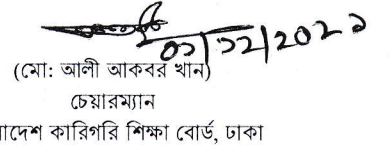 ০১/১২/২০২১
(মো: আলী আকবর খান)
চেয়ারম্যান
াদেশ কারিগরি শিক্ষা বোর্ড, ঢাকা